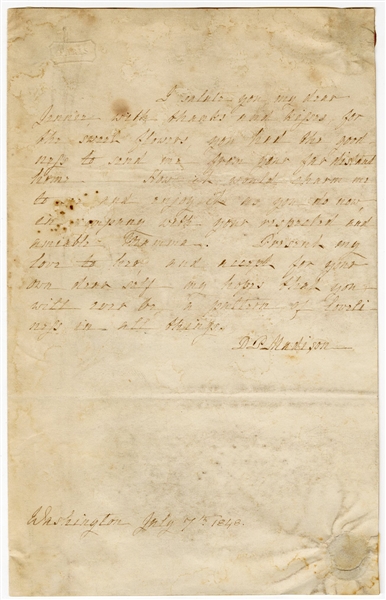 I salute you my dear
Jennie with thanks and kisses for
the sweet flowers you had the good
ness to send me from your far distant
home How it would charm me
to and enjoy as you do now
in company with your respected and
amiable Mamma. Present my
love to her and accept for your
own dear self my hopes that you
will ever be a pattern of loveli
ness in all things.
D. P. Madison
Washington July 7th 1848.